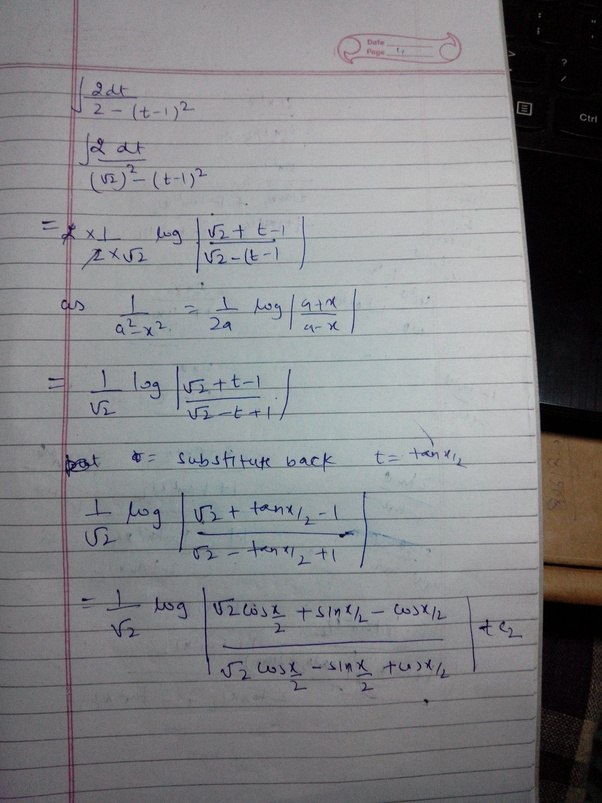 Date
Page
∫ 2dt / 2 - (t-1)²
∫ 2 dt / (√2)² - (t-1)²
= 2 × 1 / 2 × √2 log | √2 + t-1 / √2 - (t-1 |
as 1 / a²-x² = 1 / 2a log | a+x / a-x |
= 1 / √2 log | √2 + t-1 / √2 - t+1 |
= substitute back t = tan x/2
1 / √2 log | √2 + tan x/2 - 1 / √2 - tan x/2 + 1 |
= 1 / √2 log | √2 cos x/2 + sin x/2 - cos x/2 / √2 cos x/2 - sin x/2 + cos x/2 | + c₂
?
/
Ctrl